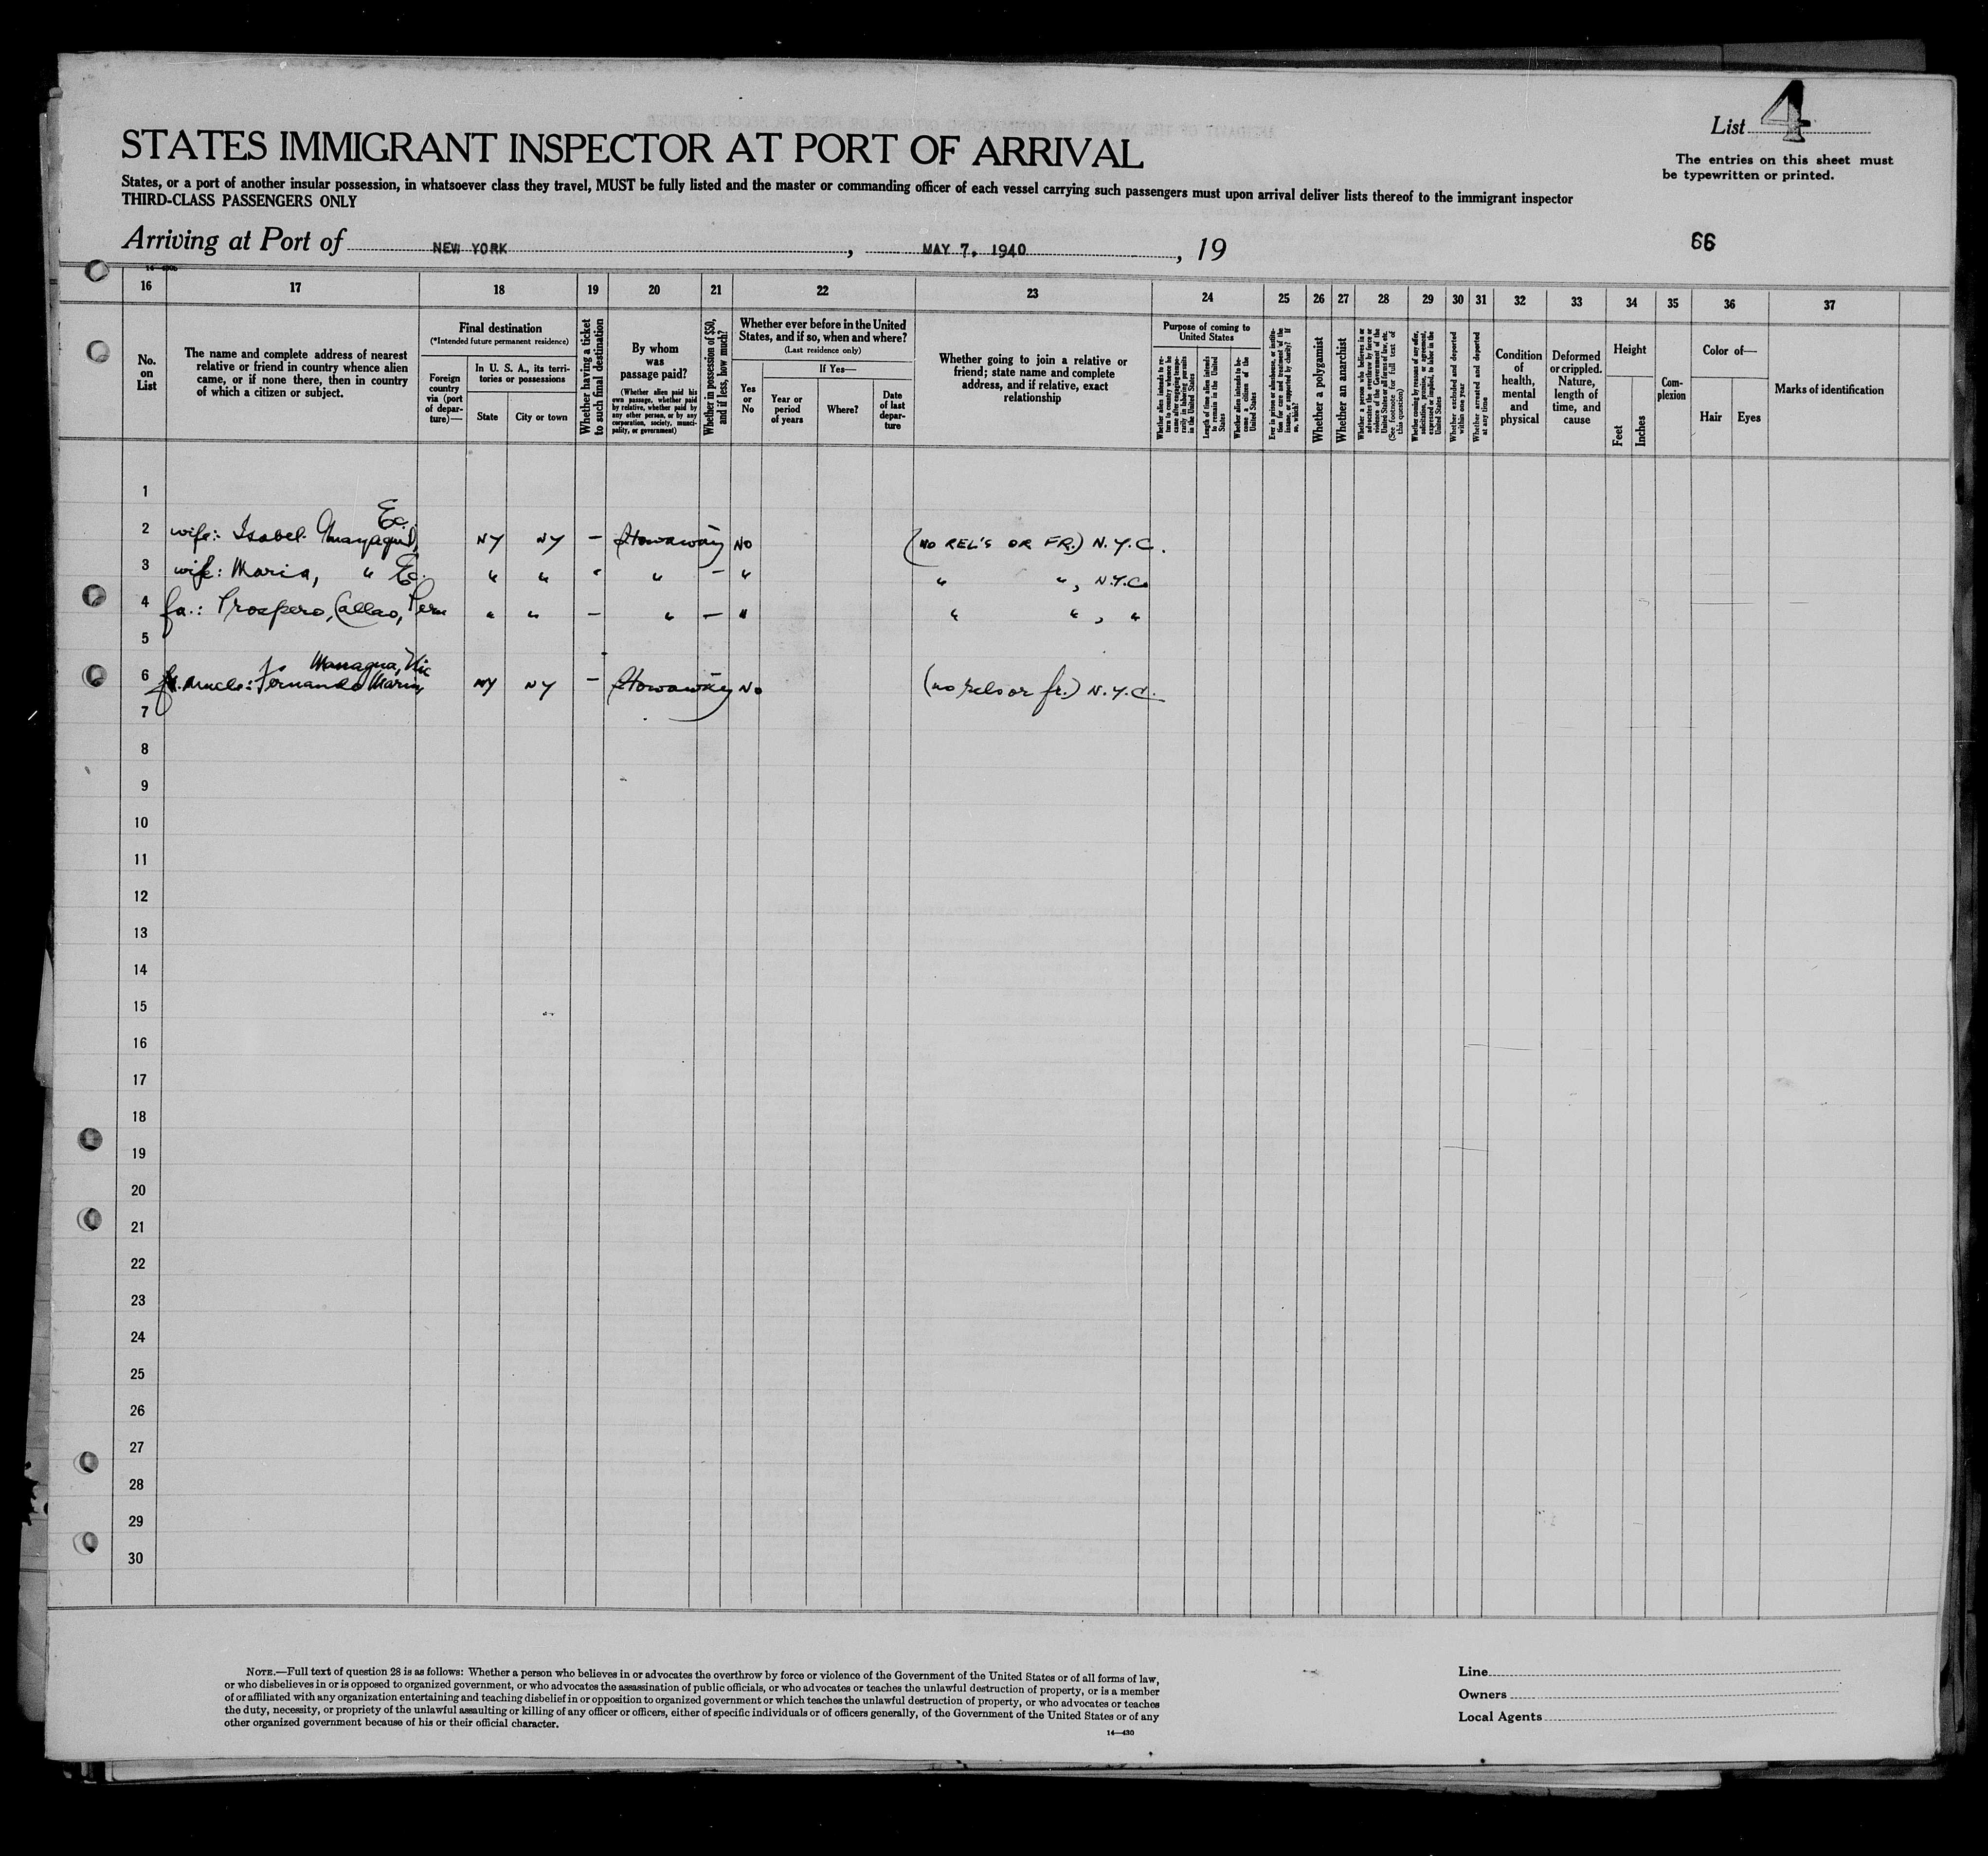 List 4
The entries on this sheet must
be typewritten or printed.
STATES IMMIGRANT INSPECTOR AT PORT OF ARRIVAL
States, or a port of another insular possession, in whatsoever class they travel, MUST be fully listed and the master or commanding officer of each vessel carrying such passengers must upon arrival deliver lists thereof to the immigrant inspector
THIRD-CLASS PASSENGERS ONLY
Arriving at Port of NEW YORK, MAY 7, 1940, 19
66
16 17 18 19 20 21 22 23 24 25 26 27 28 29 30 31 32 33 34 35 36 37
No.
on
List
The name and complete address of nearest
relative or friend in country whence alien
came, or if none there, then in country
of which a citizen or subject.
Final destination
(*Intended future permanent residence)
Foreign
country
via (port
of depar-
ture)—
In U. S. A., its terri-
tories or possessions
State
City or town
Whether having a ticket
to such final destination
By whom
was
passage paid?
(Whether alien paid his
own passage, whether paid
by relative, whether paid by
any other person, or by any
corporation, society, munci-
pality, or government)
Whether in possession of $50,
and if less, how much?
Whether ever before in the United
States, and if so, when and where?
(Last residence only)
Yes
or
No
If Yes—
Year or
period
of years
Where?
Date
of last
depar-
ture
Whether going to join a relative or
friend; state name and complete
address, and if relative, exact
relationship
Purpose of coming to
United States
Whether alien intends to re-
turn to country whence he
came after engaging tempo-
rarily in laboring pursuits
in the United States
Length of time alien intends
to remain in the United
States
Whether alien intends to be-
come a citizen of the
United States
Ever in prison or almshouse, or institu-
tion for care and treatment of the
insane, or supported by charity? If
so, which?
Whether a polygamist
Whether an anarchist
Whether a person who believes in or
advocates the overthrow by force or
violence of the Government of the
United States or all forms of law, etc.
(See footnote for full text of
this question)
Whether coming by reason of any offer,
solicitation, promise, or agreement,
expressed or implied, to labor in the
United States
Whether excluded and deported
within one year
Whether arrested and deported
at any time
Condition
of
health,
mental
and
physical
Deformed
or crippled.
Nature,
length of
time, and
cause
Height
Feet
Inches
Com-
plexion
Color of—
Hair
Eyes
Marks of identification
1
Ec.
2 wife: Isabel Guayaquil, NY NY – Stowaway – No (NO REL'S OR FR.) N.Y.C.
3 wife: Maria, " Ec. " " " " – " " ", N.Y.C.
4 fa.: Prospero, Callao, Peru " " – " – " " ", "
5
Managua, Nic
6 uncle: Fernando Marin, NY NY – Stowaway – No (no rels or fr.) N.Y.C.
7
8
9
10
11
12
13
14
15
16
17
18
19
20
21
22
23
24
25
26
27
28
29
30
NOTE.—Full text of question 28 is as follows: Whether a person who believes in or advocates the overthrow by force or violence of the Government of the United States or of all forms of law,
or who disbelieves in or is opposed to organized government, or who advocates the assassination of public officials, or who advocates or teaches the unlawful destruction of property, or is a member
of or affiliated with any organization entertaining and teaching disbelief in or opposition to organized government or which teaches the unlawful destruction of property, or who advocates or teaches
the duty, necessity, or propriety of the unlawful assaulting or killing of any officer or officers, either of specific individuals or of officers generally, of the Government of the United States or of any
other organized government because of his or their official character.
14—430
Line
Owners
Local Agents